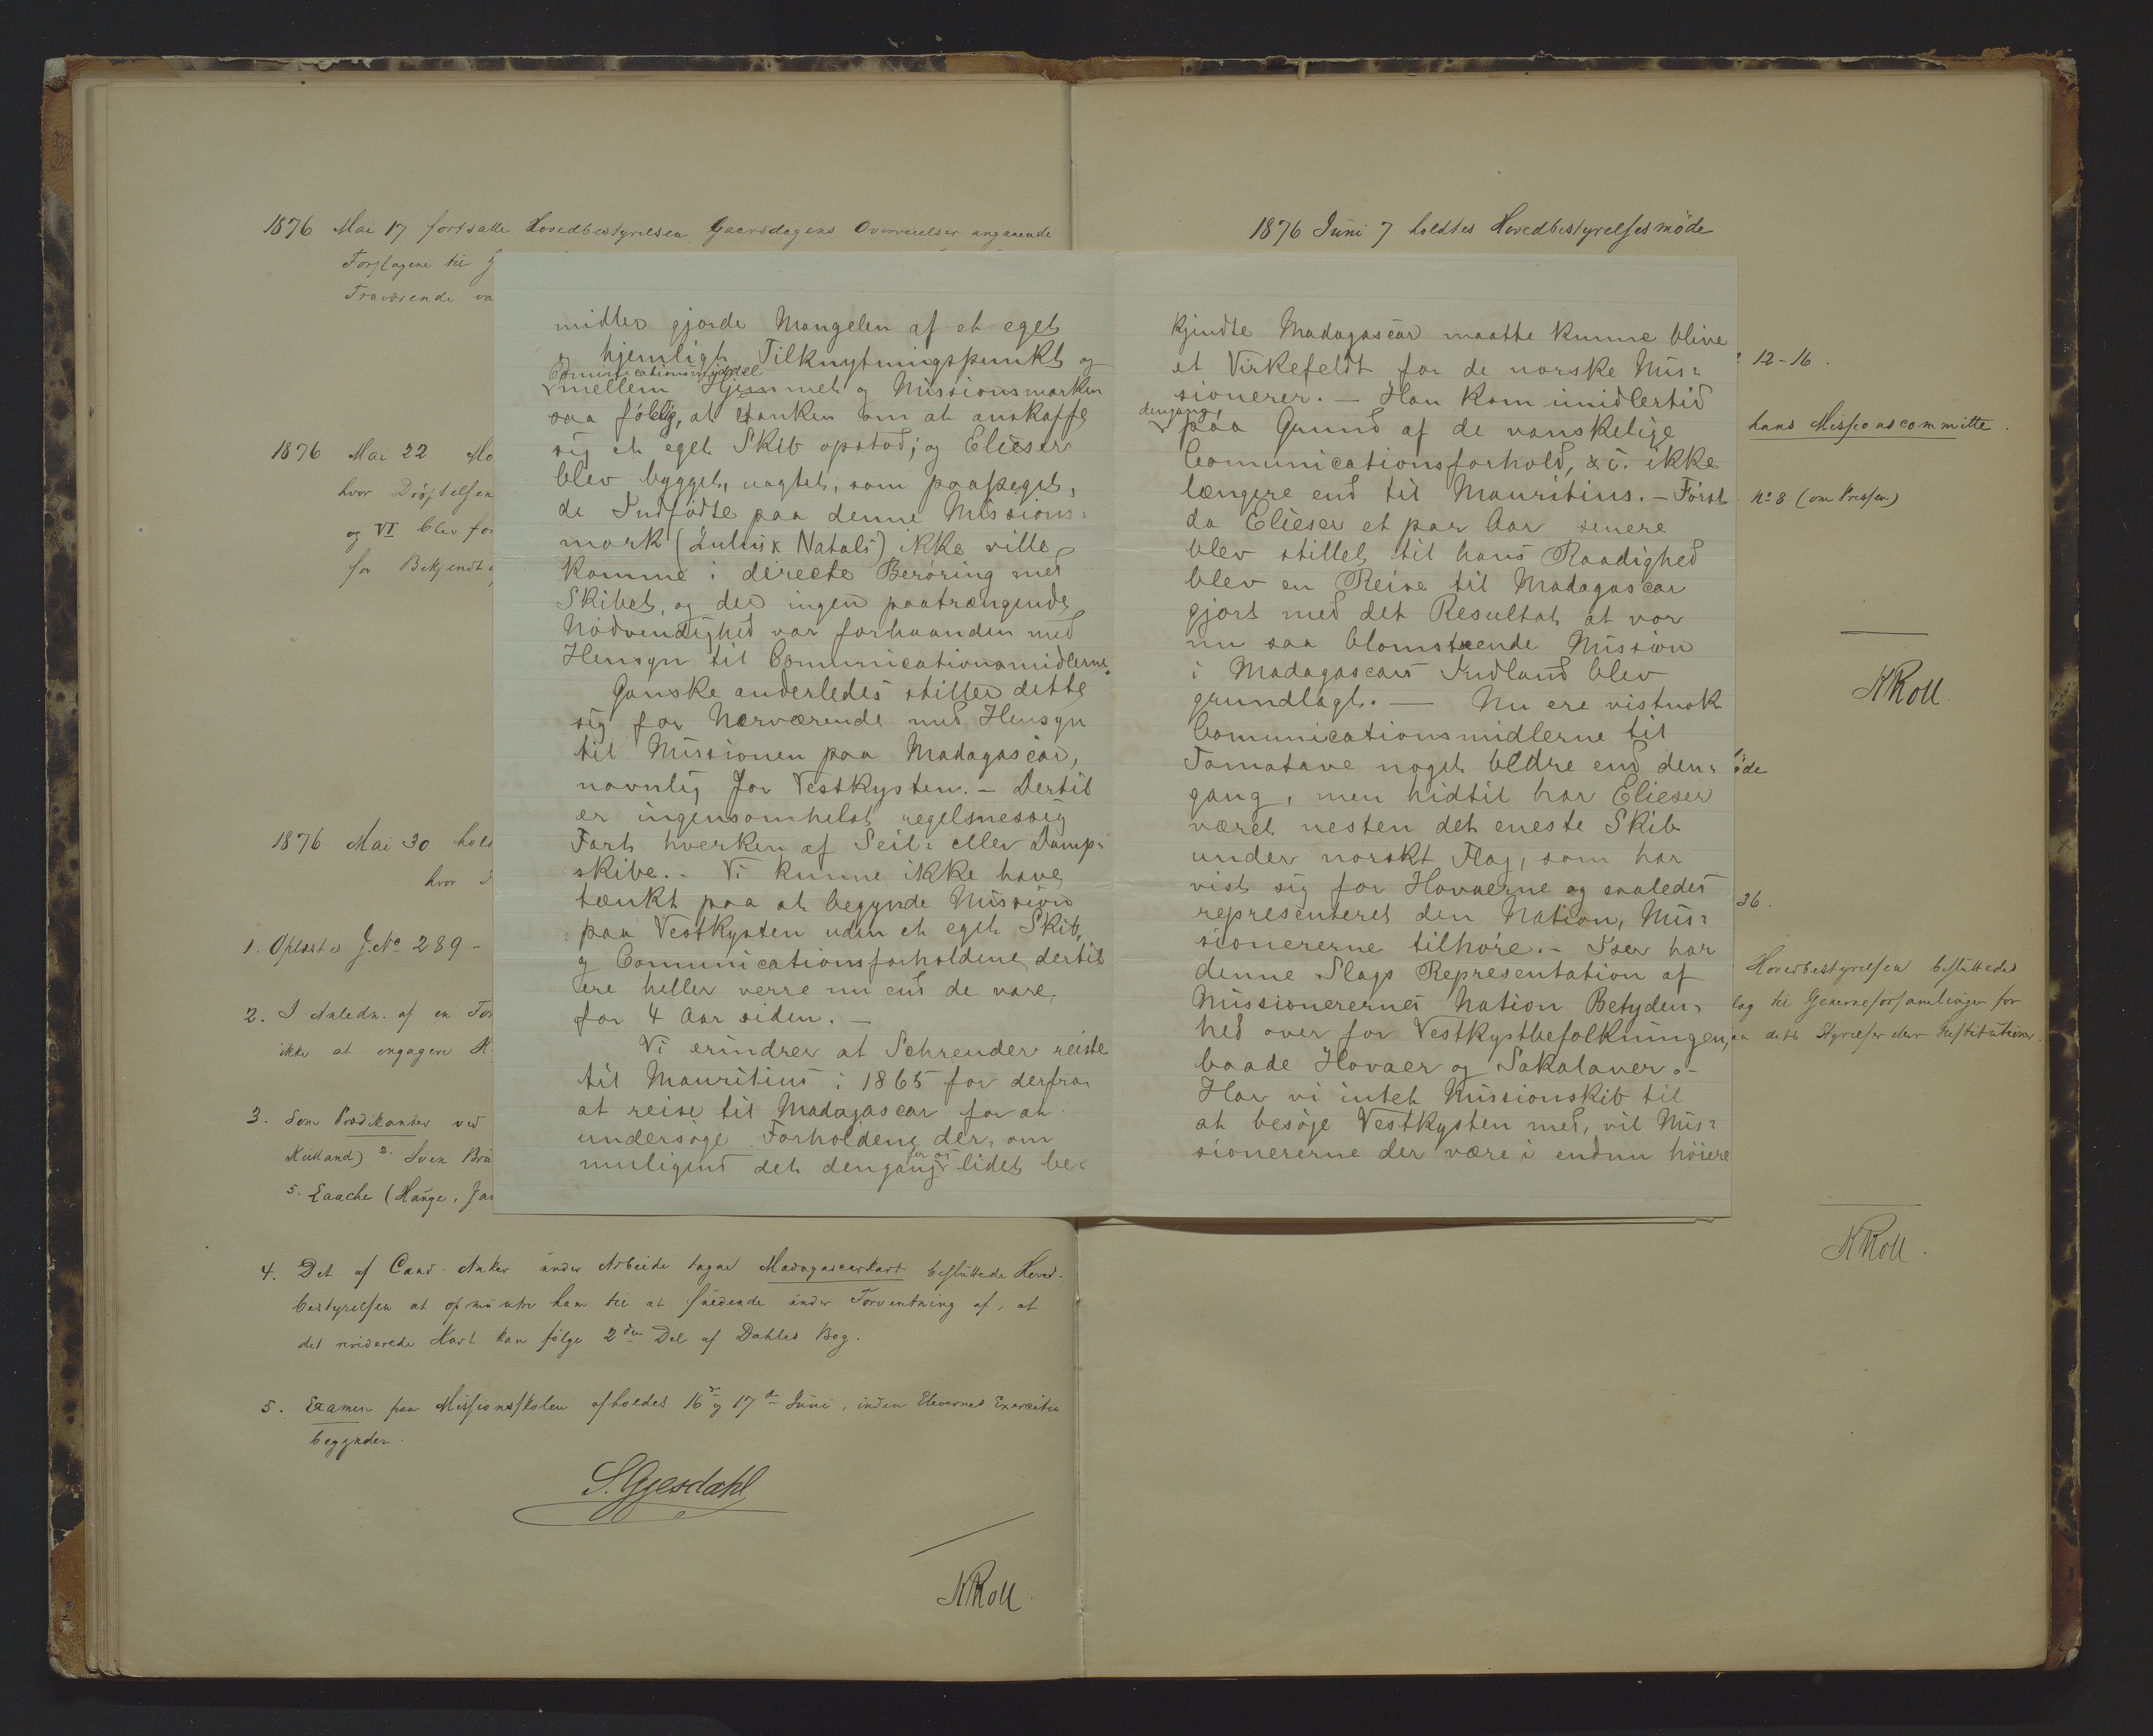 1876 Mai 17 fortsatte Hovedbestyrelsen Gaarsdagens Overveielser angaaende
Forslagene til
Fraværende va
1876 Mai 22 Mo
hvor Drøftelsen
og VI blev for
for Bekjendt
1876 Mai 30 hold
hvor
1. Oplæstes J.No 289 -
2. I Anledn. af en For
ikke at engagere H
3. Som Prædikanter ved
Kielland) 2. Sven Brü
5. Laache (Hauge, Jar
4. Det af Cand. Anker under Arbeide tagne Madagascarkart besluttede Hoved-
bestyrelsen at opmuntre ham til at under Forventning af, at
det reviderede Kart kan følge 2den Del af Dahles Bog.
5. Examen paa Missionsskolen afholdes 16de og 17de Juni, inden Elevernes Exercitie
begynder.
S. Gjesdahl
KRoll
midler gjorde Mangelen af et eget
og hjemligt Tilknytningspunkt og
Communicationsmiddel
mellem Hjemmet og Missionsmarken
saa følelig, at Tanken om at anskaffe
sig et eget Skib opstod; og Elieser
blev bygget, uagtet, som paapeget,
de Indfødte paa denne Missions-
mark (Zulus & Natals) ikke ville
komme i directe Berøring med
Skibet, og der ingen paatrængende
Nødvendighed var forhaanden med
Hensyn til Communicationsmidlerne.
Ganske anderledes stiller dette
sig for Nærværende med Hensyn
til Missionen paa Madagascar,
navnlig for Vestkysten. - Dertil
er ingensomhelst regelmessig
Fart hverken af Seil- eller Damp-
skibe. - Vi kunne ikke have
tænkt paa at begynde Mission
paa Vestkysten uden et eget Skib,
og Communicationsforholdene dertil
ere heller verre nu end de vare
for 4 Aar siden. -
Vi erindrer at Schreuder reiste
til Mauritius i 1865 for derfra
at reise til Madagascar for at
undersøge Forholdene der, om
for os
muligens det dengang lidet be-
1876 Juni 7 holdtes Hovedbestyrelsesmöde
kjendte Madagascar maatte kunne blive
et Virkefeldt for de norske Mis-
sionerer. - Han kom imidlertid
dengang,
paa Grund af de vanskelige
Comunicationsforhold, ikke
længere end til Mauritius. - Først
da Elieser et par Aar senere
blev stillet til hans Raadighed
blev en Reise til Madagascar
gjort med det Resultat at vor
nu saa blomstrende Mission
i Madagascars Indland blev
grundlagt. - Nu ere vistnok
Comunicationsmidlerne til
Tamatave noget bedre end den-
gang, men hidtil har Elieser
været nesten det eneste Skib
under norskt Flag, som har
vist sig for Hovaerne og saaledes
representeret den Nation, Mis-
sionererne tilhøre. - Iser har
denne Slags Representation af
Missionerernes Nation Betyden-
hed over for Vestkystbefolkningen,
baade Hovaer og Sakalaver. -
Har vi intet Missionskib til
at besøge Vestkysten med, vil Mis-
sionererne der være i endnu høiere
12-16.
hans Missionscommitte.
No 8 (om Pressen)
KRoll
öde
36.
Hovedbestyrelsen besluttedes
lag til Generalforsamlingen for
dets Styrelse eller Institutioner.
KRoll.